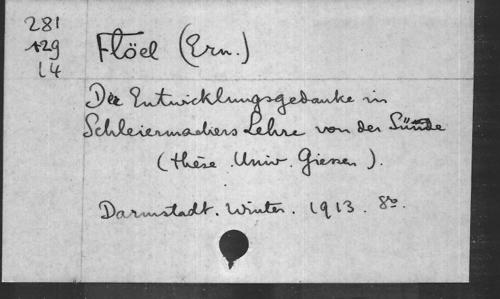 281
129
L4
Flöel (Ern.)
Der Entwicklungsgedanke in
Schleiermachers Lehre von der Sünde
(thèse. Univ. Giessen).
Darmstadt. Winter. 1913. 8o.